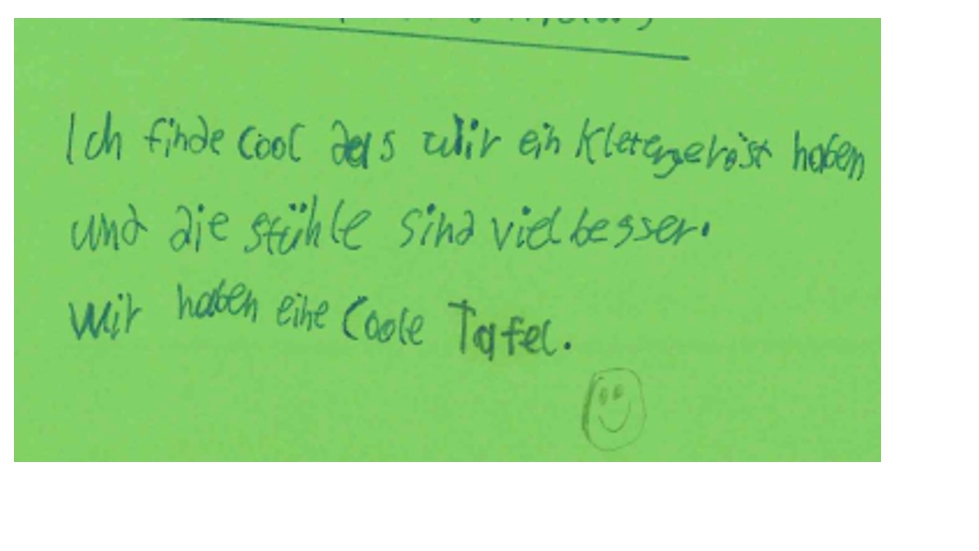 Ich finde cool das wir ein Kletergeröst haben
und die stühle sind viel besser.
Wir haben eine Coole Tafel.